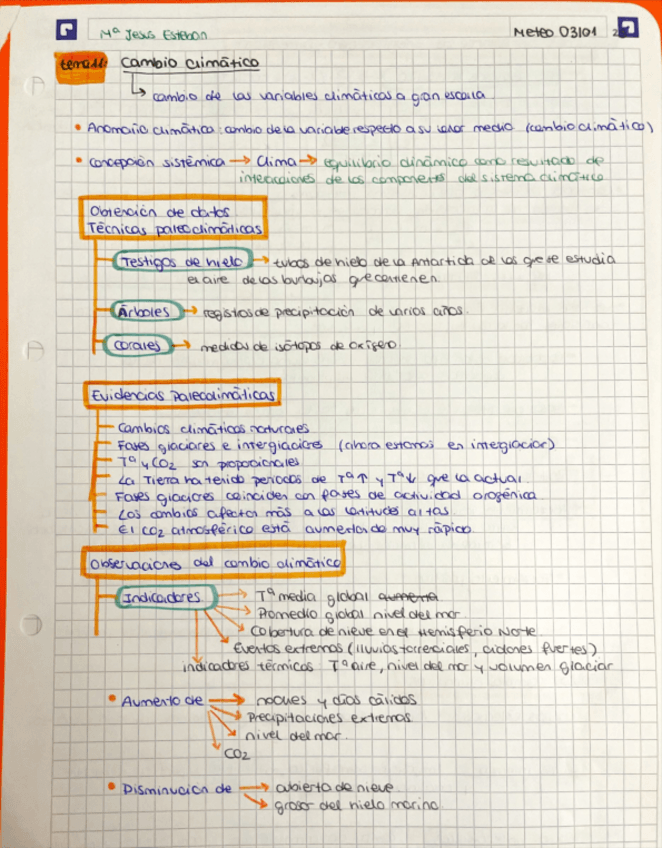 Mª Jesús Esteban
Meteo 03/01
tema 11: Cambio climático
↳ cambio de las variables climáticas a gran escala
• Anomalía climática: cambio de la variable respecto a su valor medio (cambio climático)
• concepción sistémica → Clima → equilibrio dinámico como resultado de
interacciones de los componentes del sistema climático
Obtención de datos
Técnicas paleoclimáticas
Testigos de hielo → tubos de hielo de la Antártida de los que se estudia
el aire de las burbujas que contienen.
Árboles → registros de precipitación de varios años.
corales → medidas de isótopos de oxígeno.
Evidencias Paleoclimáticas
Cambios climáticos naturales
Fases glaciares e interglaciares (ahora estamos en interglaciar)
Tª y CO2 son proporcionales
La Tierra ha tenido periodos de Tª↑ y Tª↓ que la actual
Fases glaciares coinciden con fases de actividad orogénica
Los cambios afectan más a las latitudes altas
El CO2 atmosférico está aumentando muy rápido.
Observaciones del cambio climático
Indicadores → Tª media global aumenta
Promedio global nivel del mar.
Cobertura de nieve en el Hemisferio Norte
Eventos extremos (lluvias torrenciales, ciclones fuertes)
indicadores térmicos Tª aire, nivel del mar y volumen glaciar
• Aumento de → noches y días cálidos
Precipitaciones extremas
nivel del mar
CO2
• Disminución de → cubierta de nieve
grosor del hielo marino